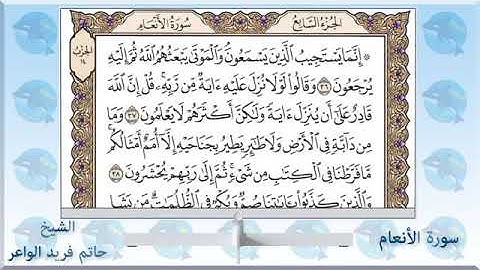 الجزء السابع
سورة الأنعام
الحزب
١٤
۞ إِنَّمَا يَسْتَجِيبُ الَّذِينَ يَسْمَعُونَ وَالْمَوْتَى يَبْعَثُهُمُ اللَّهُ ثُمَّ إِلَيْهِ
يُرْجَعُونَ ٣٦ وَقَالُوا لَوْلَا نُزِّلَ عَلَيْهِ ءَايَةٌ مِّن رَّبِّهِ قُلْ إِنَّ اللَّهَ
قَادِرٌ عَلَى أَن يُنَزِّلَ ءَايَةً وَلَكِنَّ أَكْثَرَهُمْ لَا يَعْلَمُونَ ٣٧ وَمَا
مِن دَابَّةٍ فِي الْأَرْضِ وَلَا طَائِرٍ يَطِيرُ بِجَنَاحَيْهِ إِلَّا أُمَمٌ أَمْثَالُكُم
مَّا فَرَّطْنَا فِي الْكِتَابِ مِن شَيْءٍ ثُمَّ إِلَى رَبِّهِمْ يُحْشَرُونَ ٣٨
وَالَّذِينَ كَذَّبُوا بِآيَاتِنَا صُمٌّ وَبُكْمٌ فِي الظُّلُمَاتِ مَن يَشَإِ
الشيخ
حاتم فريد الواعر
سورة الأنعام